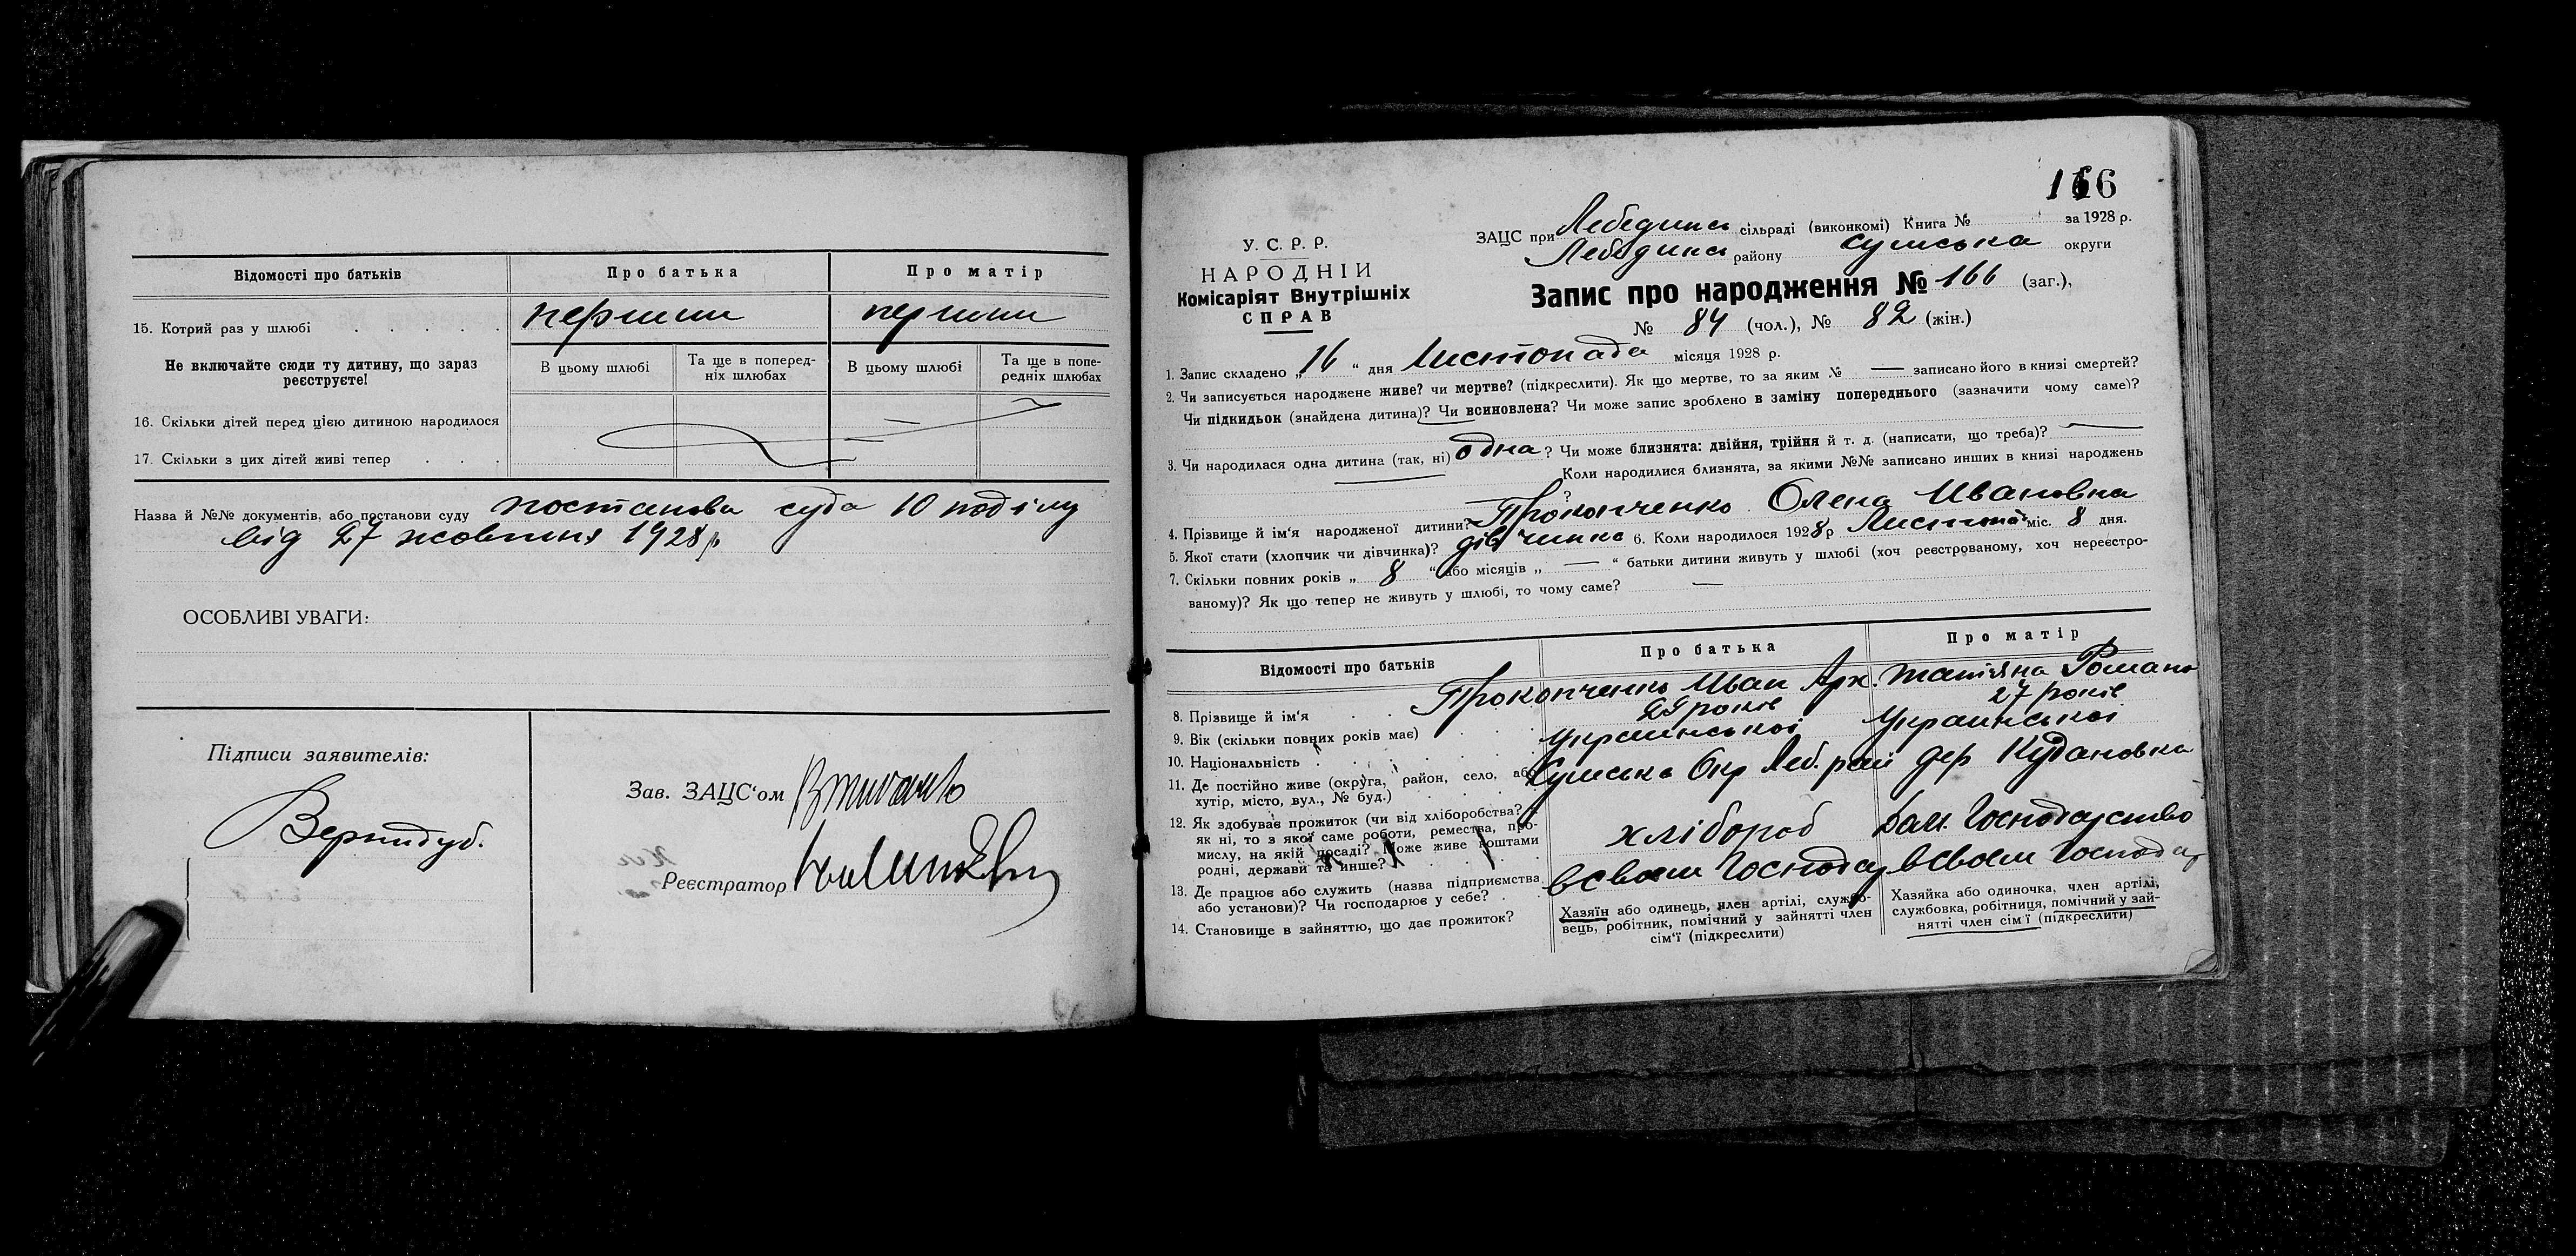 Відомості про батьків
Про батька
Про матір
15. Котрий раз у шлюбі . . . . . первий первий
Не включайте сюди ту дитину, що зараз реєструєте!
В цьому шлюбі
Та ще в поперед-
ніх шлюбах
В цьому шлюбі
Та ще в попе-
редніх шлюбах
16. Скільки дітей перед цією дитиною народилося
17. Скільки з цих дітей живі тепер . . .
Назва й №№ документів, або постанови суду постанова суда 10 поділу
від 27 жовтня 1928 р
ОСОБЛИВІ УВАГИ:
Підписи заявителів:
Вернидуб.
Зав. ЗАЦС'ом
Реєстратор
166
У. С. Р. Р.
НАРОДНІЙ
Комісаріят Внутрішніх
СПРАВ
ЗАЦС при Лебединсь сільраді (виконкомі) Книга № за 1928 р.
Лебединсь району сумська округи
Запис про народження № 166 (заг.),
№ 84 (чол.), № 82 (жін.)
1. Запис складено „16 “ дня Листопада місяця 1928 р.
2. Чи записується народжене живе? чи мертве? (підкреслити). Як що мертве, то за яким № — записано його в книзі смертей?
Чи підкидьок (знайдена дитина)? Чи всиновлена? Чи може запис зроблено в заміну попереднього (зазначити чому саме)?
3. Чи народилася одна дитина (так, ні) одна? Чи може близнята: двійня, трійня й т. д. (написати, що треба)? —
Коли народилися близнята, за якими №№ записано инших в книзі народжень
— ?
4. Прізвище й ім'я народженої дитини? Прокопченко Олена Ивановна
5. Якої стати (хлопчик чи дівчинка)? дівчинка 6. Коли народилося 1928 р Листопа міс. 8 дня.
7. Скільки повних років „ 8 “ або місяців „ — “ батьки дитини живуть у шлюбі (хоч реєстрованому, хоч нереєстро-
ваному)? Як що тепер не живуть у шлюбі, то чому саме? —
Відомості про батьків
Про батька
Про матір
8. Прізвище й ім'я . . Прокопченко Иван Арх. татіяна Романо
9. Вік (скільки повних років має) . . 29 років 27 років
10. Національність . . . . . . Украинськоі Украинськоі
11. Де постійно живе (округа, район, село, або
хутір, місто, вул., № буд.) . . . . Сумська Окр Леб. рай дер Кудановка
12. Як здобував прожиток (чи від хліборобства?
як ні, то з якої саме роботи, ремества, про-
мислу, на якій посаді? Може живе коштами
родні, держави та инше? . . . . хлібороб Дом. Господарство
13. Де працює або служить (назва підприємства
або установи)? Чи господарює у себе? . . в своем Господар в своем господар
14. Становище в зайняттю, що дає прожиток?
Хазяїн або одинець, член артілі, службо-
вець, робітник, помічний у зайнятті член
сім'ї (підкреслити)
Хазяйка або одиночка, член артілі,
службовка, робітниця, помічний у зай-
нятті член сім'ї (підкреслити)